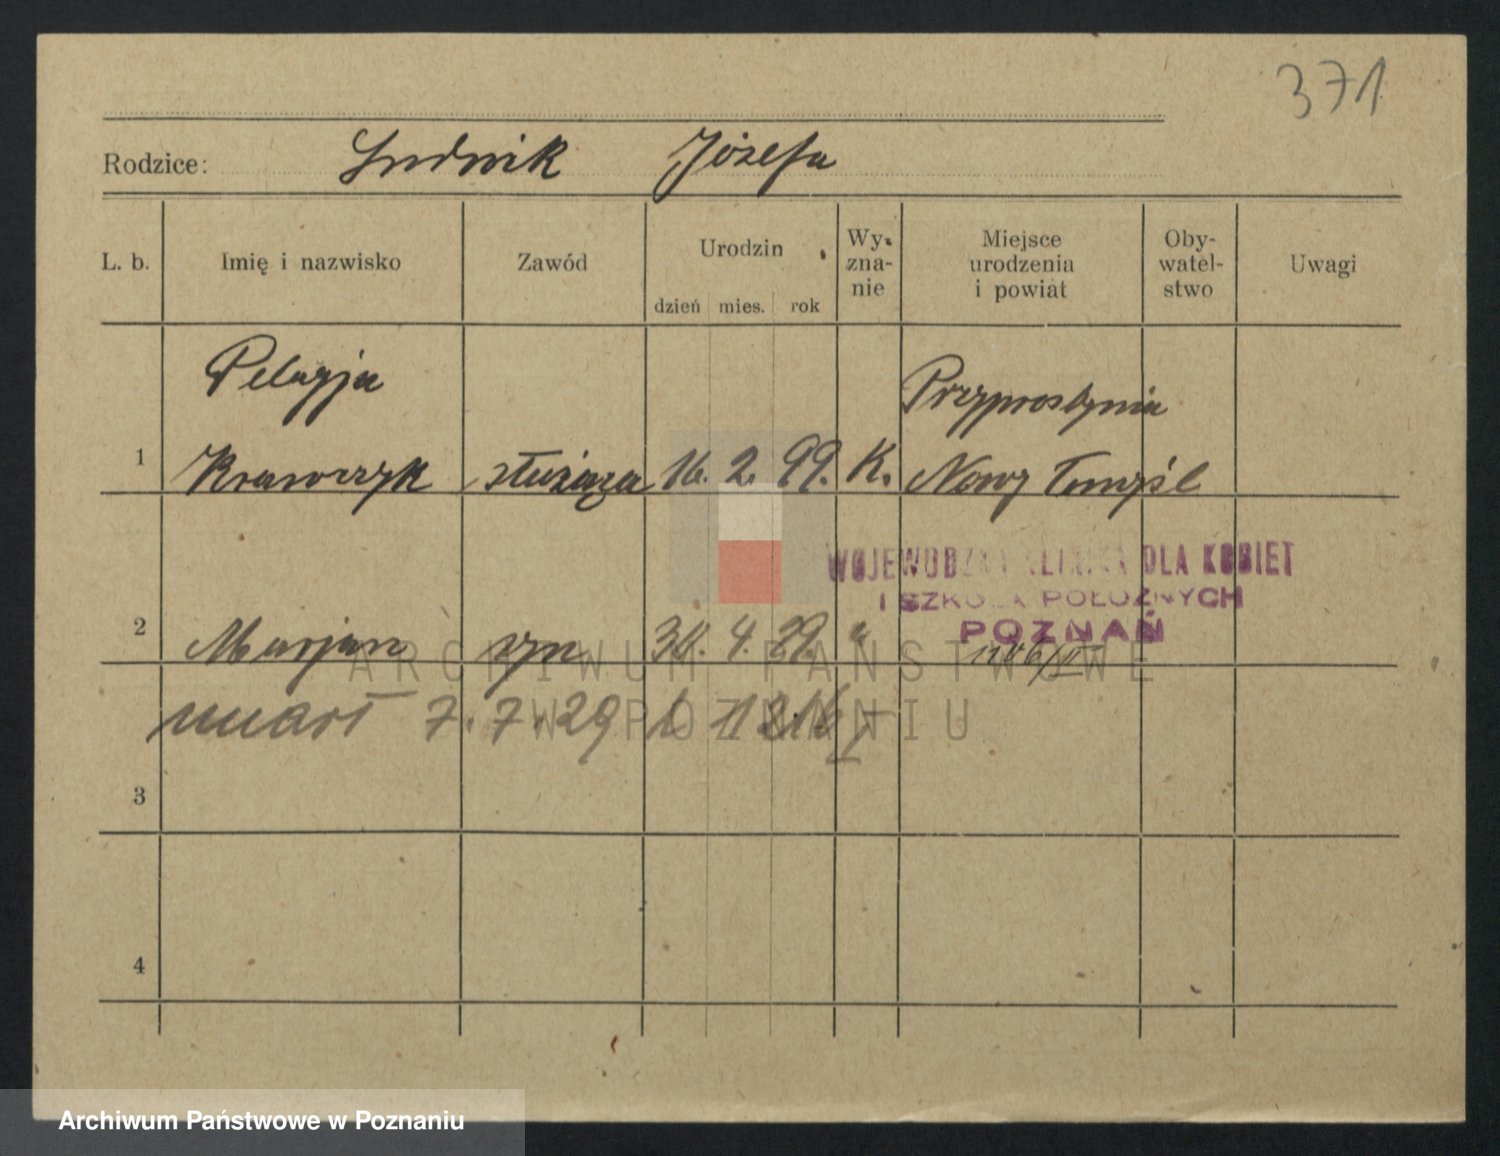 371
Rodzice: Ludwik Józefa
L. b. Imię i nazwisko Zawód Urodzin dzień mies. rok Wy-zna-nie Miejsce urodzenia i powiat Oby-watel-stwo Uwagi
Pelagja Przyprostynia
1 Krawczyk służąca 16. 2. 99. K. Nowy Tomyśl
WOJEWODZKA KLINIKA DLA KOBIET
I SZKOŁA POŁOŻNYCH
POZNAŃ
2 Marjan syn 4. 29. "
ARCHIWUM PAŃSTWOWE
W POZNANIU
umarł 7. 7. 29
3
4
Archiwum Państwowe w Poznaniu